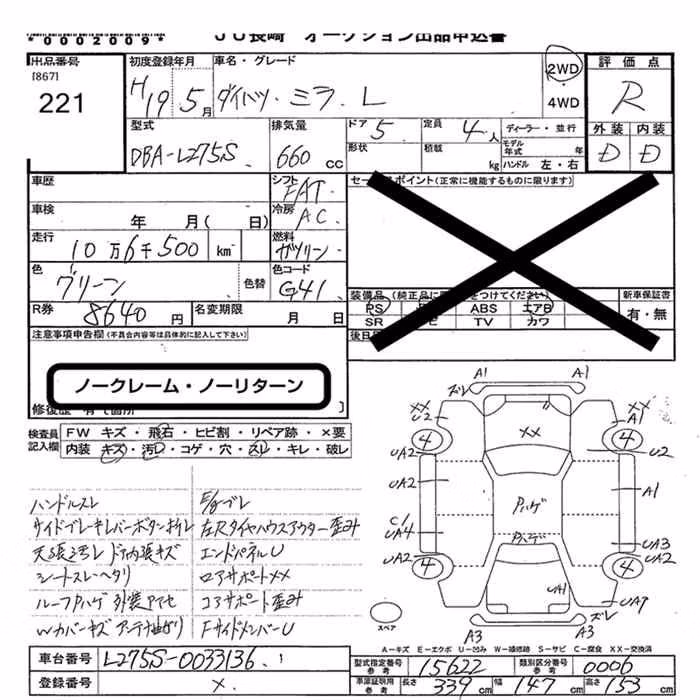 JU長崎 オークション出品申込書
*0002009*
出品番号 初度登録年月 車名・グレード 2WD 評価点
[867]
221 H19 5月 ダイハツ・ミラ.L ・4WD R
型式 排気量 ドア 5 定員 4人 ディーラー・並行 外装 内装
DBA-L275S 660cc 形状 積載 kg モデル年式 年 ハンドル 左・右 D D
車歴 シフト FAT セールスポイント(正常に機能するものに限ります)
車検 年 月( 日) 冷房 AC
走行 10万6千500 km 燃料 ガソリン
色 グリーン 色替 色コード G41 装備品(純正品に をつけてください) 新車保証書
PS ABS エアB 有・無
SR TV カワ
R券 8640円 名変期限 月 日 後日
注意事項申告欄(不具合内容等は具体的に記入して下さい)
ノークレーム・ノーリターン
修復歴 有(箇所 )
検査員 記入欄 FW キズ・飛石・ヒビ割・リペア跡・×要
内装 キズ・汚レ・コゲ・穴・スレ・キレ・破レ
ハンドルスレ E/gブレ
サイドブレーキレバーボタン折レ 左Rタイヤハウスアウター歪み
天張汚レ ドア内張キズ エンドパネルU
シートスレ・ヘタリ ロアサポートXX
ルーフPハゲ 外装アセ コアサポート歪み
Wカバーキズ アンテナ曲がり FサイドメンバーU
A1 A1
ズレ
XX XX XX
U2 A1
4 4
UA2 U2
UA2 A1
Pハゲ
C1
UA4 Pハゲ UA3
UA2 UA2
4 4
UA1 UA7
ズレ
スペア A3 A3
A-キズ E-エクボ U-凹み W-補修跡 S-サビ C-腐食 XX-交換済
車台番号 L275S-0033136 型式指定番号 参考 15622 類別区分番号 参考 0006
登録番号 × 車庫証明用 参考 長さ 339cm 幅 147cm 高さ 153cm